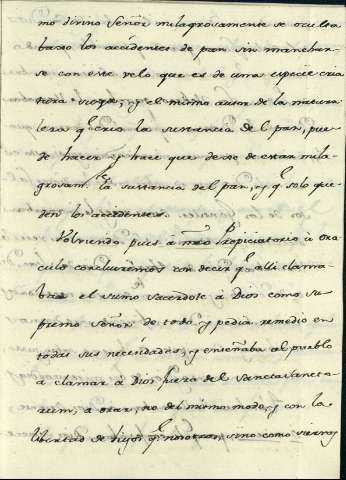 mo divino Señor milagrosamente se oculta
baxo los accidentes de pan sin manchar-
se con este velo que es de una especie cria
tura y el mismo autor de la natura
leza q.e crió la sustancia del pan, pue-
de hacer y hace que dexe de estar mila-
grosam.te la sustancia del pan, y q.e solo que-
den los accidentes.
Volviendo pues á nr̃o Propiciatorio ú ora
culo concluirémos con decir q.e alli clama
ba el sumo sacerdote á Dios como su-
premo Señor de todo y pedia remedio en
todas sus necesidades, y enseñaba al pueblo
a clamar á Dios fuera del Sancta Sancto-
rum, a orar, no del mismo modo, y con la
libertad de hijos q.e nosotros, sino como siervos